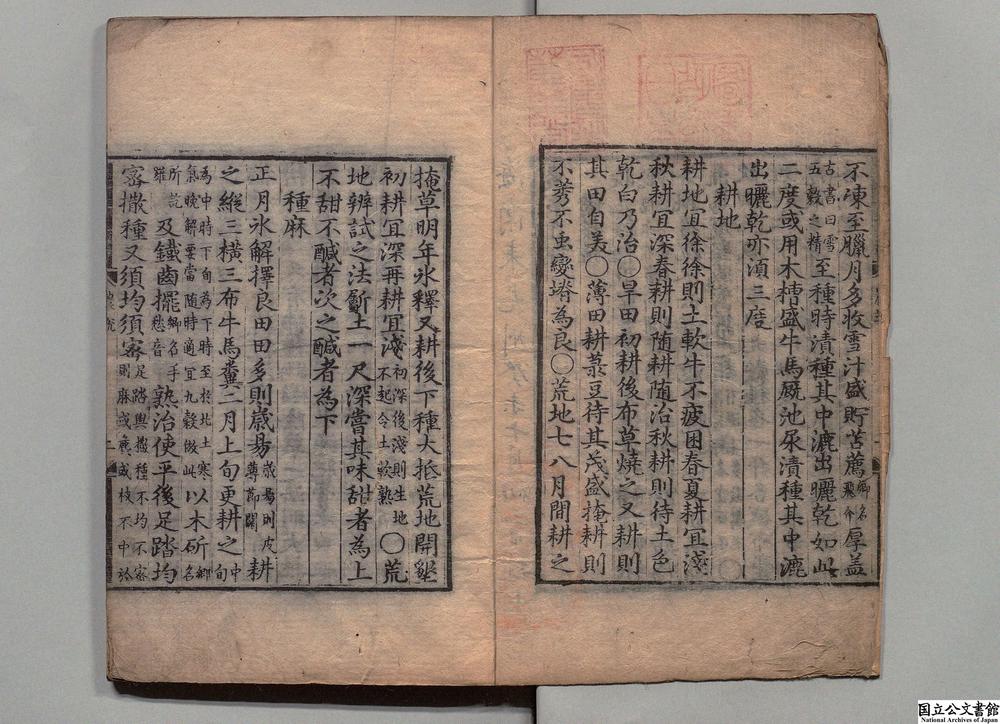 不凍至臘月多收雪汁盛貯苫薦鄉名飛介厚盖
古書曰雪五穀之精至種時漬種其中漉出曬乾如此
二度或用木槽盛牛馬厩池尿漬種其中漉
出曬乾亦湏三度
耕地
耕地宜徐徐則土軟牛不疲困春夏耕宜淺
秋耕宜深春耕則随耕随治秋耕則待土色
乾白乃治〇旱田初耕後布草燒之又耕則
其田自美〇薄田耕菉豆待其茂盛掩耕則
不莠不虫變塉為良〇荒地七八月間耕之
掩草明年氷釋又耕後下種大抵荒地開墾
初耕宜深再耕宜淺初深後淺則生地不起令土軟熟〇荒
地辨試之法斸土一尺深嘗其味甜者為上
不甜不醎者次之醎者為下
種麻
正月氷解擇良田田多則歳易歳易則皮薄節闊耕
之縱三橫三布牛馬糞二月上旬更耕之中旬
為中時下旬為下時至於北土寒氣晚解要當隨時適宜九穀倣此以木斫鄉名
所訖羅及鐵齒擺鄉名手愁音熟治使平後足踏均
密撒種又須均須密足踏與撒種不均不密則麻或麁或枝不中於
国立公文書館
National Archives of Japan